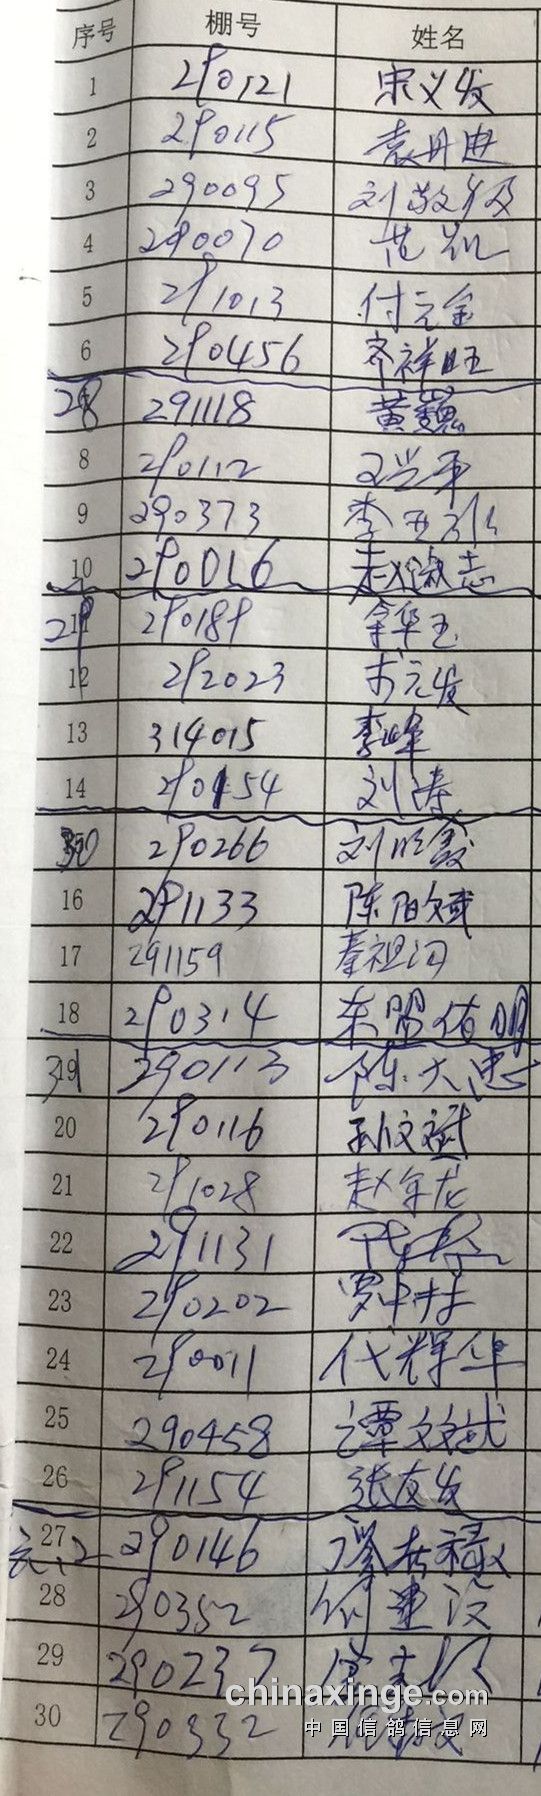 序号 棚号 姓名
1 290121 宋义发
2 290115 袁丹迪
3 290095 刘敬
4 290070 范凯
5 291013 付元金
6 290456 齐祥旺
28 291118 黄巍
8 290112 王兴平
9 290373 李亚彬
10 290016 赵淑志
29 11 290189 拿华玉
12 292023 元发
13 314015 李峰
14 290154 刘涛
30 290266 刘明鑫
16 291133 陈阳斌
17 291159 秦祖
18 290314 东盟佑明
31 19 290113 陈大忠
20 290116 孙文斌
21 291028 赵年龙
22 291131
23 290202 罗中
24 290011 代辉华
25 290458 谭文斌
26 291154 张友发
27 290146
28 290352 何建
29 290237
30 290332
chinaxinge.com
中国信鸽信息网